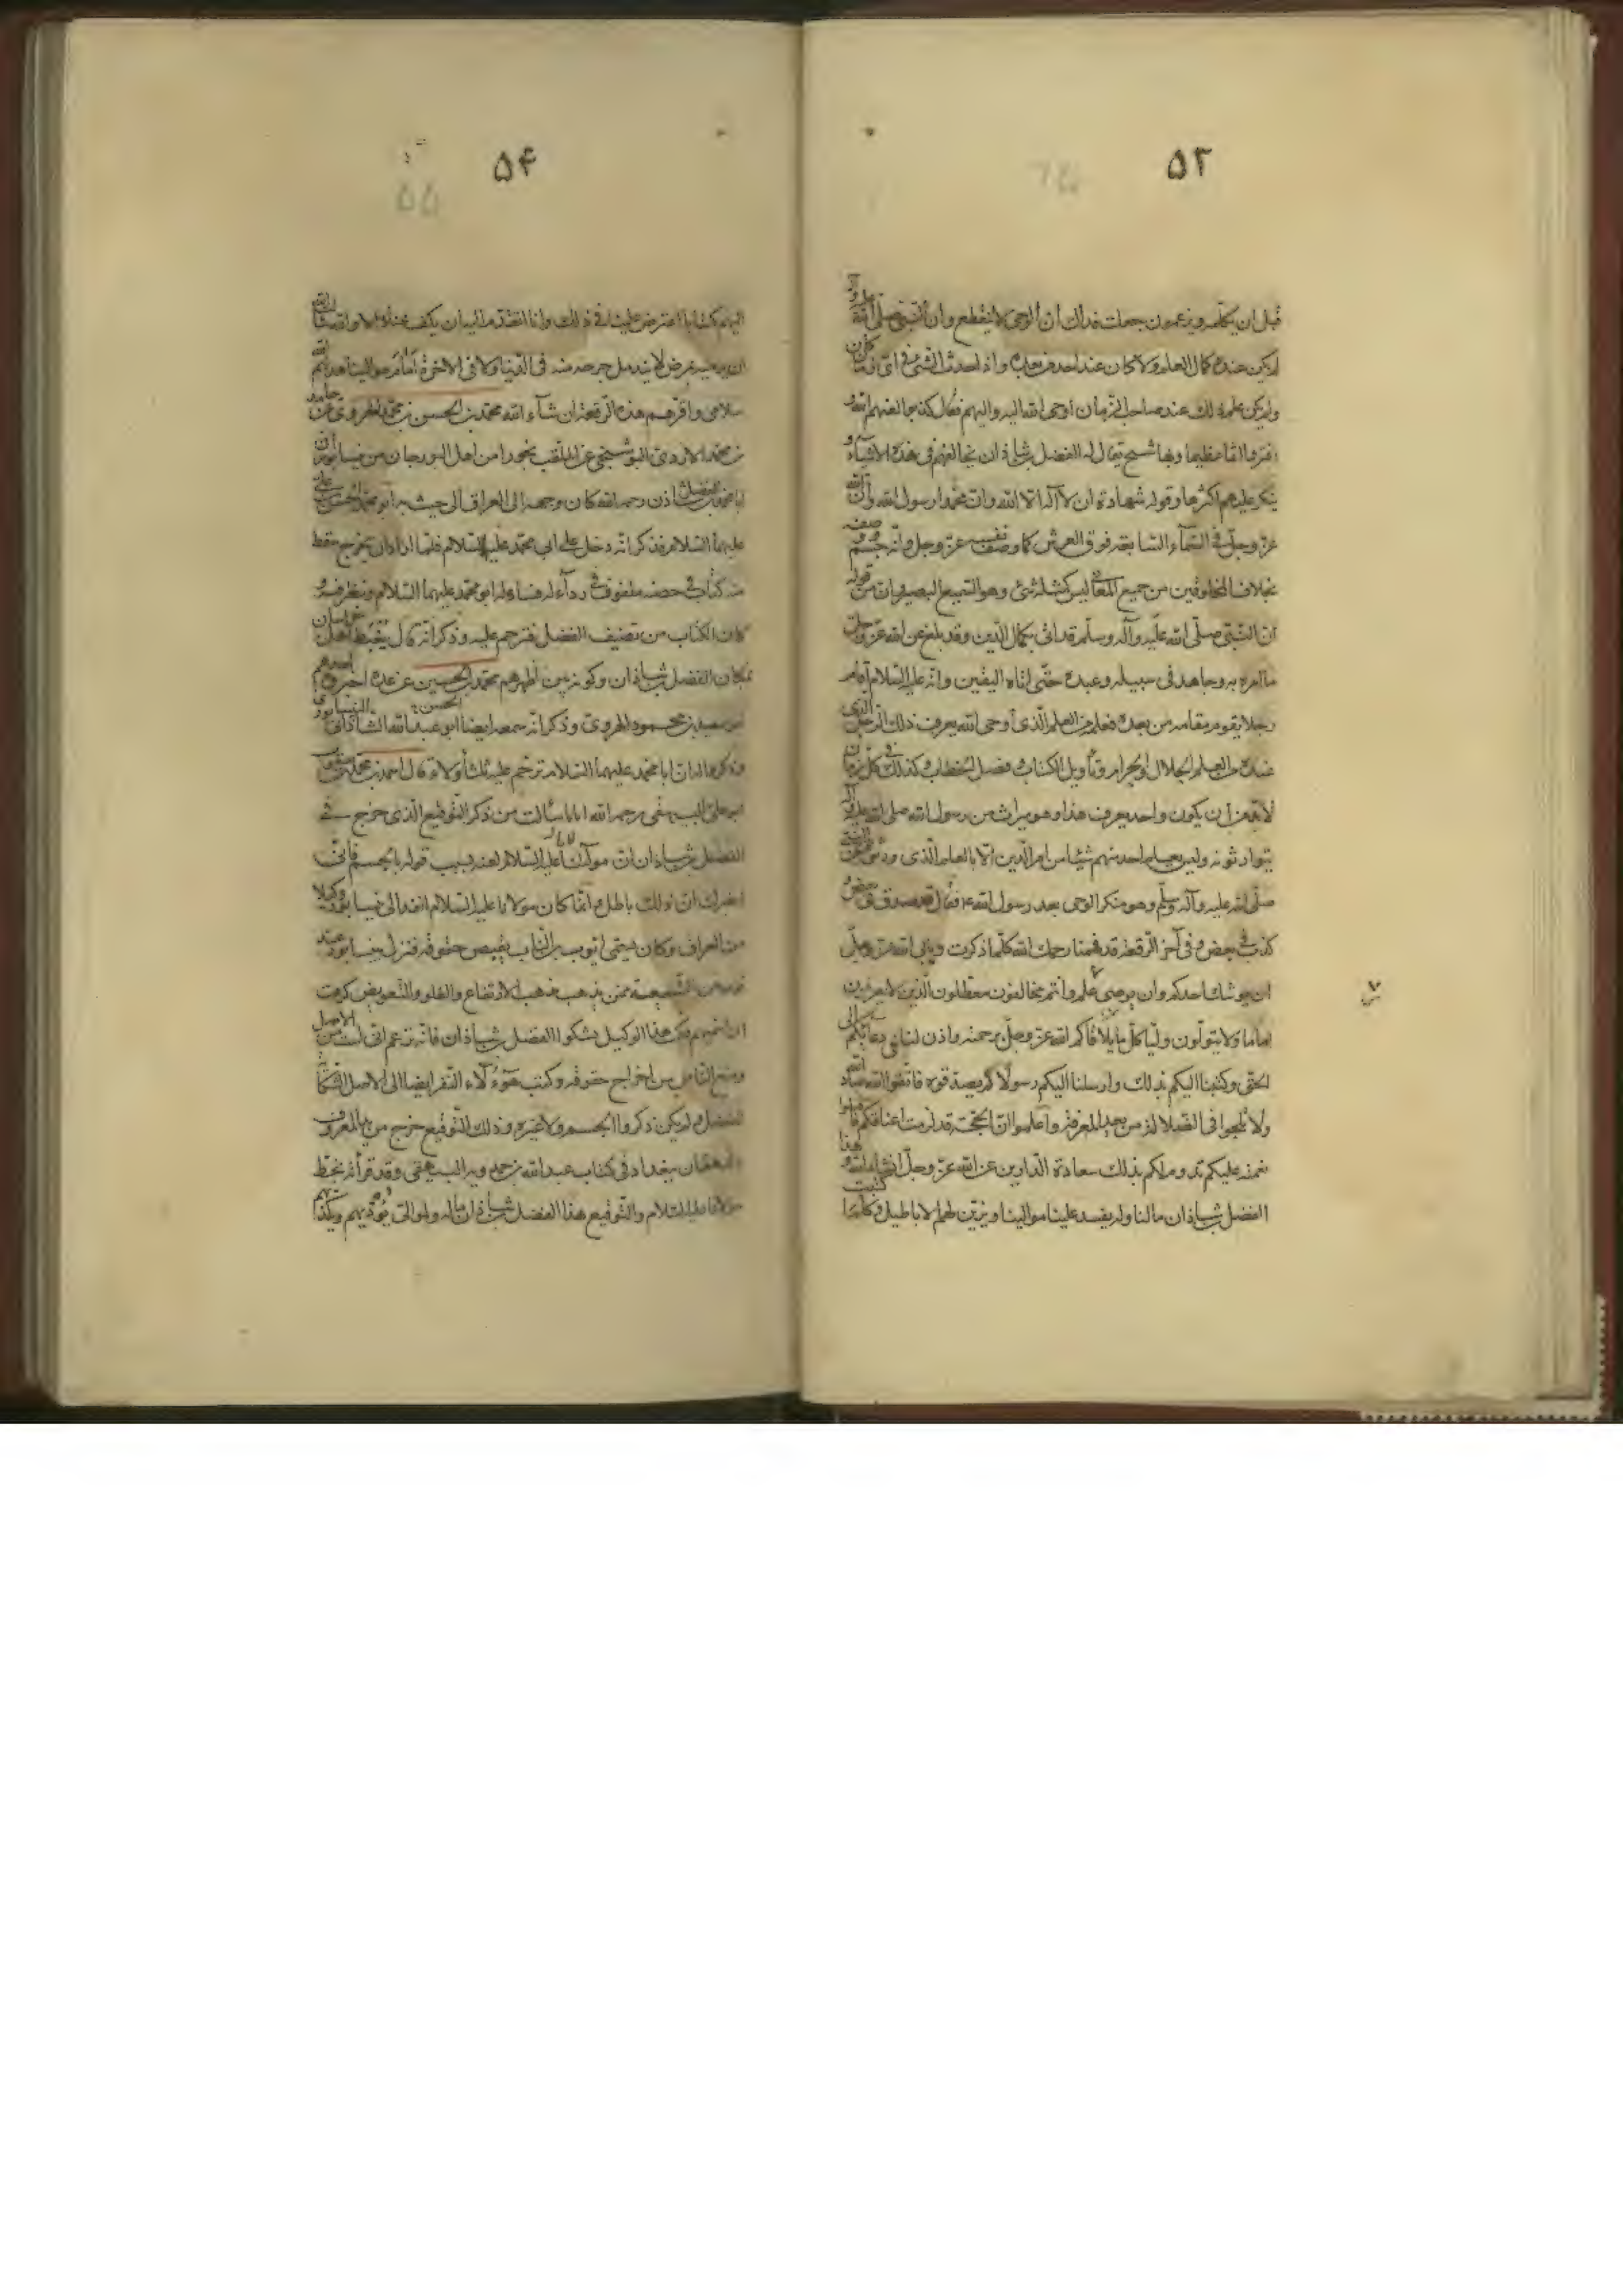 ۵۳
قبل ان يكلمه ويزعمون جعلت فداك ان الوحى لا ينقطع وان النبى صلى الله عليه وآله
لم يكن عنده كمال العلم ولا كان عند احد من بعده واذا حدث الشئ فى اى زمان كان
ولم يكن علم ذلك عند صاحب الزمان اوحى الله اليه واليهم فقال كذبوا لعنهم الله و
افتروا اثما عظيما وبها شيخ يقال له الفضل بن شاذان يخالفهم فى هذه الاشياء و
ينكر عليهم اكثرها وقوله شهادة ان لا آله الا الله وان محمدا رسول الله وان الله
عز وجل فى السمآء السابعة فوق العرش كما وصف نفسه عز وجل وانه جسم
بخلاف المخلوقين من جميع المعانى ليس كمثله شئ وهو السميع البصير وان من قوله
ان النبى صلى الله عليه وآله وسلم قد اتى بكمال الدين وقد بلغ عن الله عز وجل
ما امره به وجاهد فى سبيله وعبده حتى اتاه اليقين وانه عليه السلام اقام
رجلا يقوم مقامه من بعده فعلمه من العلم الذى اوحى الله يعرف ذلك الرجل الذى
عنده من العلم الحلال والحرام وتأويل الكتاب وفصل الخطاب وكذلك فى كل زمان
لابد من ان يكون واحد يعرف هذا وهو ميراث من رسول الله صلى الله عليه وآله
يتوارثونه وليس يعلم احد منهم شيئا من امر الدين الا بالعلم الذى ورثوه عن النبى
صلى الله عليه وآله وسلم وهو منكر الوحى بعد رسول الله ص فقال قد صدق فى بعض و
كذب فى بعض وفى آخر الرقعة قد فهمنا رحمك الله كلما ذكرت ويابى الله عز وجل
ان يرشد احدكم وان يرضى عنكم وانتم مخالفون معطلون الذين لا يعرفون
اماما ولا يتولون وليا كلما تلافاكم الله عز وجل برحمته واذن لنا فى دعائكم الى
الحق وكتبنا اليكم بذلك وارسلنا اليكم رسولا لم تصدقوه فاتقوا الله عباد الله
ولا تلجوا فى الضلالة من بعد المعرفة واعلموا ان الحجة قد لزمت اعناقكم فاقبلوا
نعمته عليكم تدوم لكم بذلك سعادة الدارين عن الله عز وجل ان شاء الله وهذا
الفضل بن شاذان ما لنا وله يفسد علينا موالينا ويزين لهم الاباطيل وكلما كتبت
۵۴
۵۵
اليهم كتابا اعترض علينا فى ذلك وانا اتقدم اليه ان يكف عنا والا والله سألت الله
ان يرميه بمرض لا يندمل جرحه منه فى الدنيا ولا فى الاخرة ابلغ موالينا هداهم الله
سلامى واقرئهم هذه الرقعة ان شآء الله محمد بن الحسن بن محمد الهروى عن حامد
بن محمد الازدى البوشنجى عن الملقب بخورا من اهل البوزجان من نيسابور ان
ابا محمد الفضل بن شاذان رحمه الله كان وجهه الى العراق الى حيث به ابو محمد الحسن بن على
عليهما السلام فذكر انه دخل على ابى محمد عليه السلام فلما اراد ان يخرج سقط
منه كتاب فى حضنه ملفوف فى ردآء له فتناوله ابو محمد عليهما السلام ونظر فيه و
كان الكتاب من تصنيف الفضل فترحم عليه وذكر انه قال يغبط اهل خراسان
بمكان الفضل بن شاذان وكونه بين اظهرهم محمد بن الحسين عن عدة اخبروه احدهم
ابو سعيد بن محمود الهروى وذكر انه سمعه ايضا ابو عبد الله الشاذانى النيسابورى
وذكر له ان ابا محمد عليهما السلام ترحم عليه ثلثا ولاء قال احمد بن محمد بن يعقوب
ابو على البيهقى رحمه الله اما ما سألت من ذكر التوقيع الذى خرج فى
الفضل بن شاذان ان مولانا عليه السلام لعنه بسبب قوله بالجسم فانى
اخبرك ان ذلك باطل وانما كان مولانا عليه السلام انفذ الى نيسابور وكيلا
من العراق وكان يسمى ايوب بن الناب يقبض حقوقه فنزل بنيسابور عند
قوم من الشيعة ممن يذهب مذهب الارتفاع والغلو والتفويض كرهت
ان اسميهم فكتب هذا الوكيل يشكوا الفضل بن شاذان فانه يزعم انى لست من الاصل
ويمنع الناس من اخراج حقوقه وكتب هؤلآء النفر ايضا الى الاصل الشكاية
للفضل ولم يكن ذكروا الجسم ولا غيره وذلك التوقيع خرج من يد المعروف
بالدهقان ببغداد فى كتاب عبد الله بن حمدويه البيهقى وقد قرأته بخط
مولانا عليه السلام والتوقيع هذا الفضل بن شاذان ماله ولموالى يؤذيهم ويكذبهم